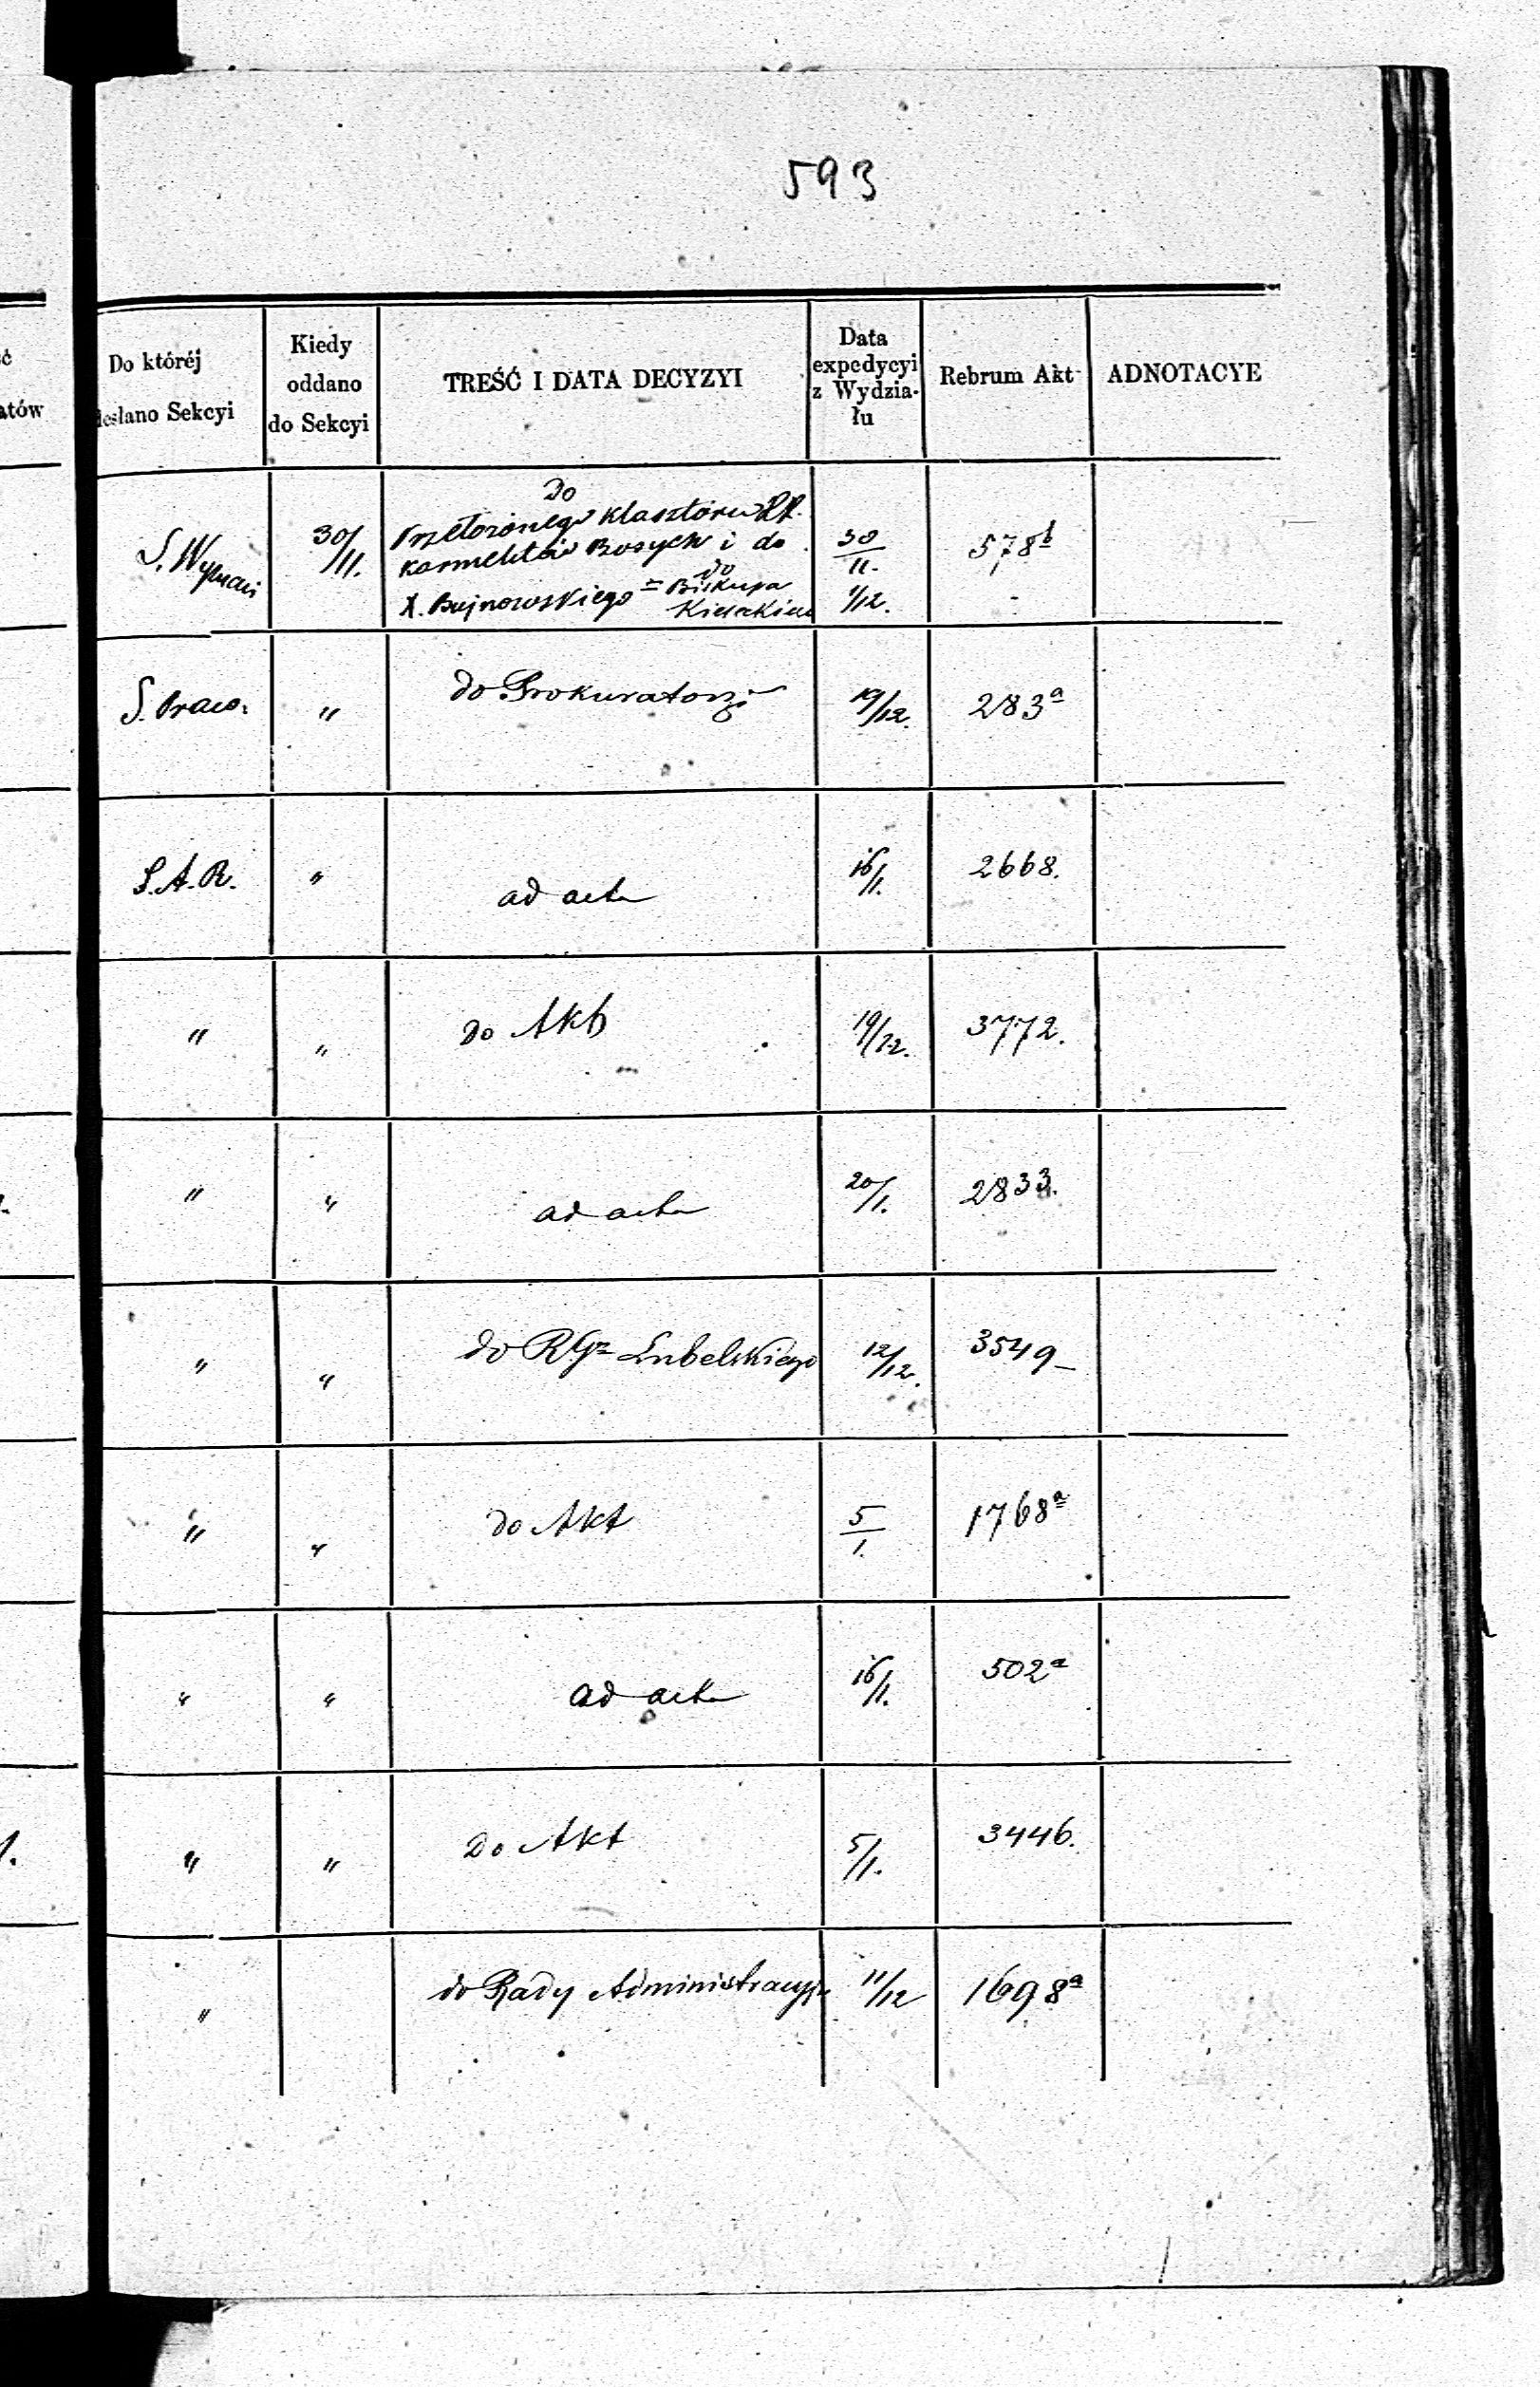 593
Do któréj
desłano Sekcyi
Kiedy
oddano
do Sekcyi
TREŚĆ I DATA DECYZYI
Data
expedycyi
z Wydzia-
łu
Rebrum Akt
ADNOTACYE
ść
atów
S. Wyznań
30/11.
Do
Przełożonego Klasztoru
Karmelitów Bosych i do
X. Bujnowskiego = do Biskupa
30/11.
1/12.
578b
S. Praw.
"
do Prokuratorji
19/12.
283a
S.A.R.
"
ad acta
16/1.
2668.
"
"
do Akt
19/12.
3772.
"
"
ad acta
20/1.
2833.
"
"
do RGr Lubelskiego
12/12.
3549_
"
"
do Akt
5/1.
1768a
"
"
ad acta
16/1.
502a
"
"
do Akt
5/1.
3446.
"
do Rady Administracyj
11/12
1698a